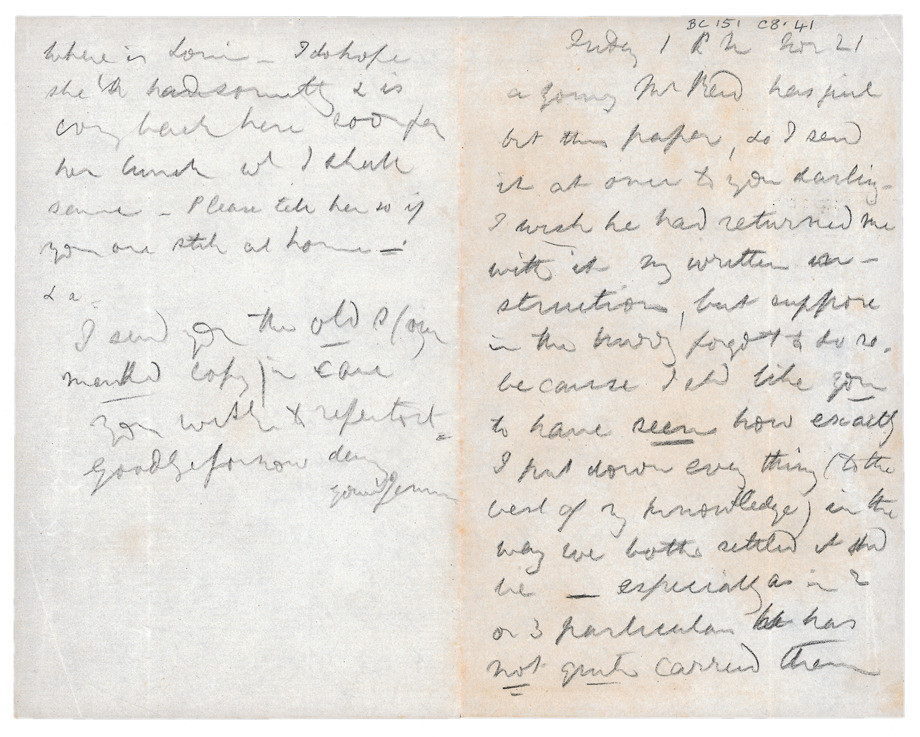 BC 151 C8.41
Friday 1 P M Nov 21
a young Mr Reid has just
bt this paper, so I send
it at once to you darling –
I wish he had returned me
with it my written in –
structions, but suppose
in the hurry forgot to do so,
because I shd like you
to have seen how exactly
I put down every thing (to the
best of my knowledge) in the
way we both settled it shd
be – especially as in 2
or 3 particulars he has
not quite carried them
where is – I do hope
she & is
back here soon for
her lunch wh I shall
– Please tell her so if
you are still at home –
& a –
I send you the old S (my
marked copy) in case
you wish to refer to it –
Goodbye for now